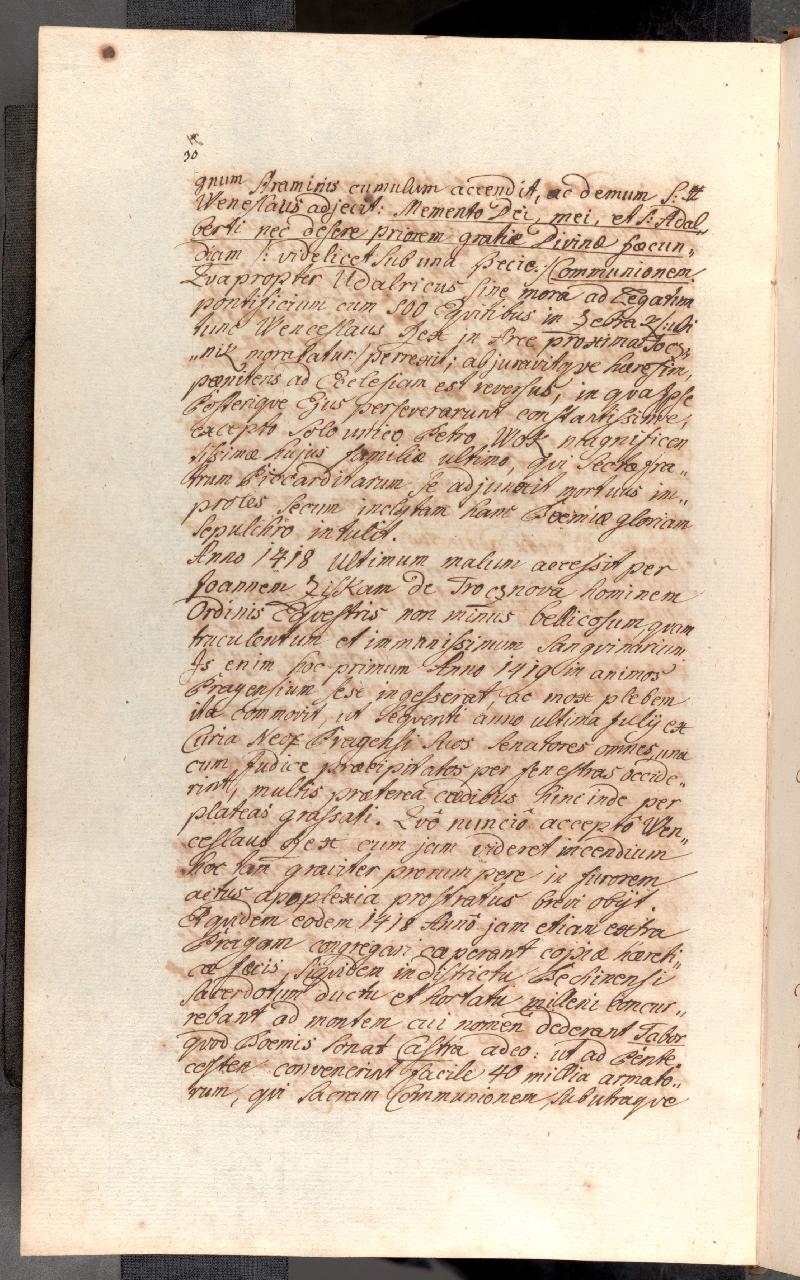 30
gnum straminis cumulum accendit, ac demum S: 
Weneslaus adjecit: Memento Dei, mei, et S: Adal„
berti nec desere priorem gratiæ Divinæ fæcun„
diam /: videlicet sub una specie :/ Communionem.
Qvapropter Udalricus sine mora ad Legatum
pontificium cum 500 Eqvitibus in Zebra /: ubi
tunc Wenceslaus Rex in Arce proxima Tocz„
„nik moratatur :/ perrexit; abjuravitqve hæresim,
pænitens ad Ecclesiam est reversus, in qva Ipse
Posteriqve Ejus perseverarunt constantissime,
excepto solo unico Petro Wok magnificen
tissimæ hujus familiæ ultimo, qvi Sectæ fra„
trum Piccarditarum se adjunxit mortuus im„
proles secum inclytam hanc Boemiæ gloriam
sepulchro intulit.
Anno 1418 ultimum malum accessit per
Joannem Ziskam de Trocznova hominem
Ordinis Eqvestris non minus bellicosum, qvam
truculentum et immanissimum sangvinarium
Is enim hoc primum Anno 1419 in animos
Pragensium se ingesserat, ac mox plebem
ita commovit, ut seqventi anno ultima Julij ex
Curia Neo Pragensi suos Senatores omnes, una
cum Judice præcipitatos per fenestras occide„
rint, multis præterea cædibus hinc inde per
plateas grassati. Qvô nunciô acceptô Wen„
ceslaus Rex cum jam videret incendium
hoc tam graviter prorumpere in furorem
actus apoplexia prostratus brevi obijt.
Eqvidem eodem 1418 Annô jam etiam extra
Pragam congregari cæperant copiæ hæreti„
cæ fæcis, siqvidem in districtu Bechinensi
Sacerdotum ductu et hortatu milleni concur„
rebant ad montem cui nomen dederant Tabor
qvod Boemis sonat Castra adeo: ut ad Pente
costen convenerint facile 40 millia armato„
rum, qvi Sacram Communionem sub utraqve